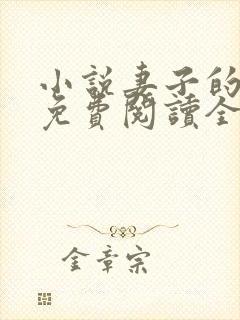 小説妻子的
免費閱讀全
金章宗